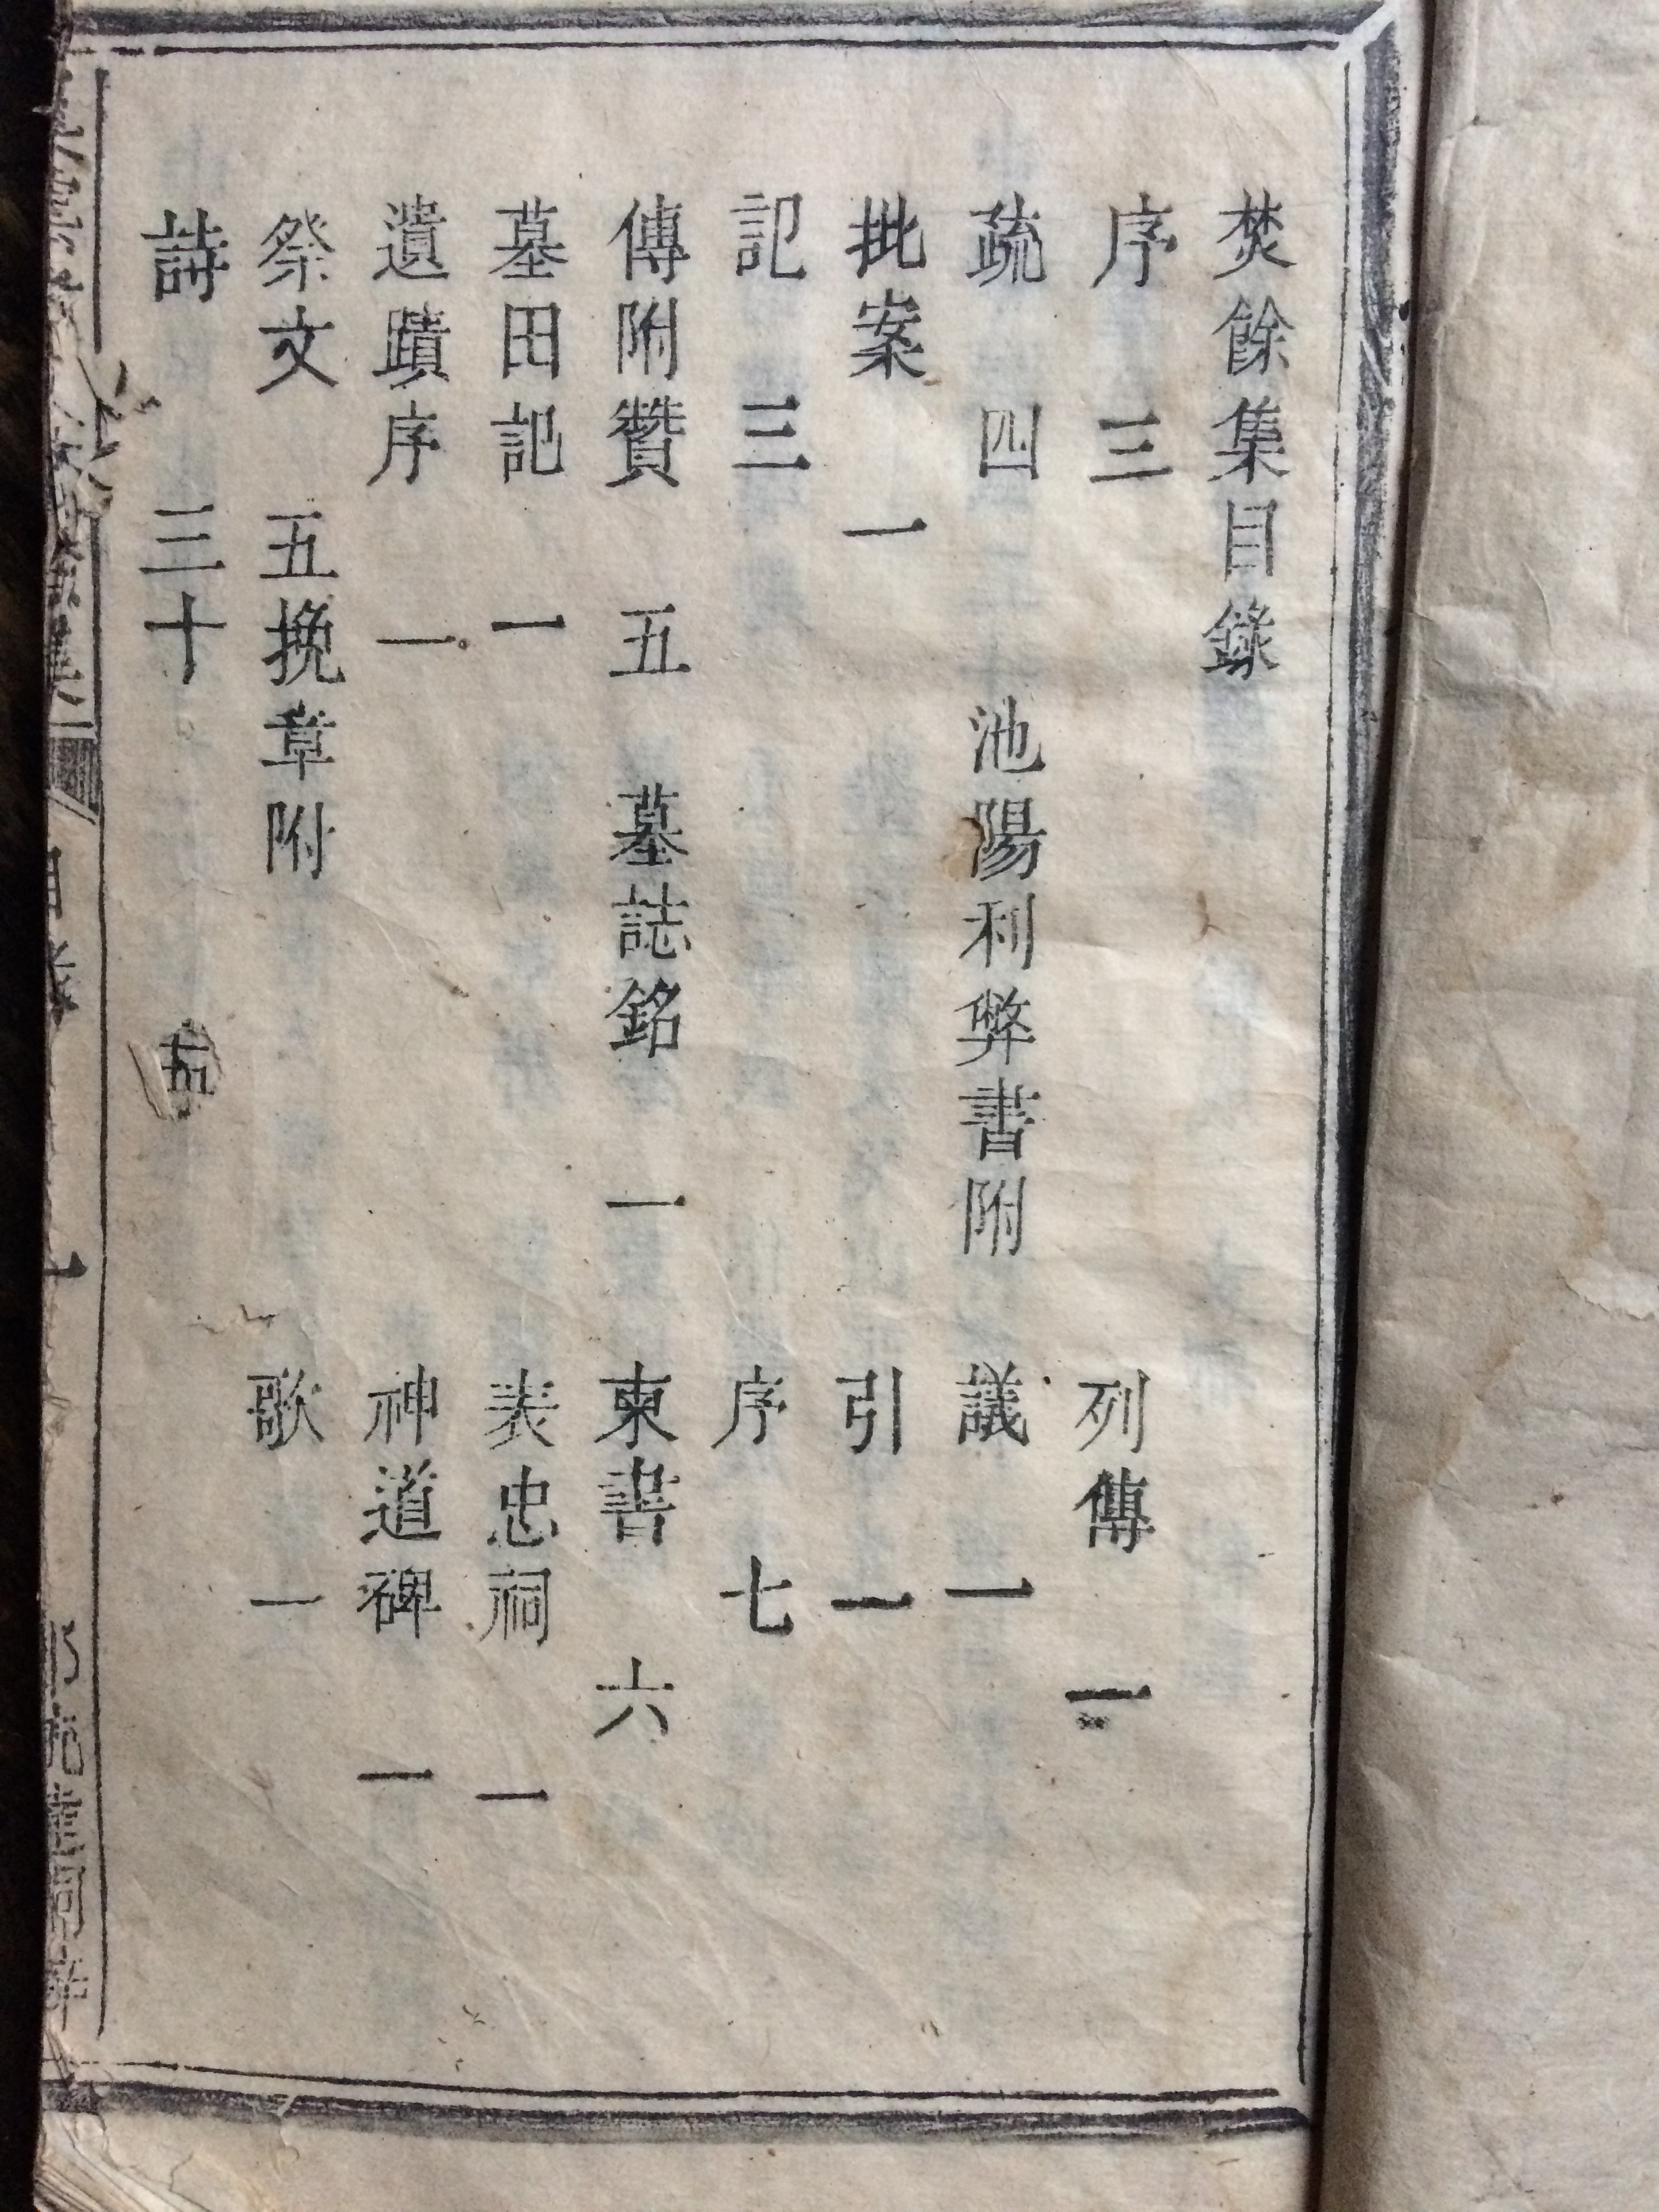 焚餘集目錄
序 三 列傳 一
疏 四 池陽利弊書附 議 一
批案 一 引 一
記 三 序 七
傳附贊 五 墓誌銘 一 柬書 六
墓田記 一 表忠祠 一
遺蹟序 一 神道碑 一
祭文 五挽章附 歌 一
詩 三十
目錄 一